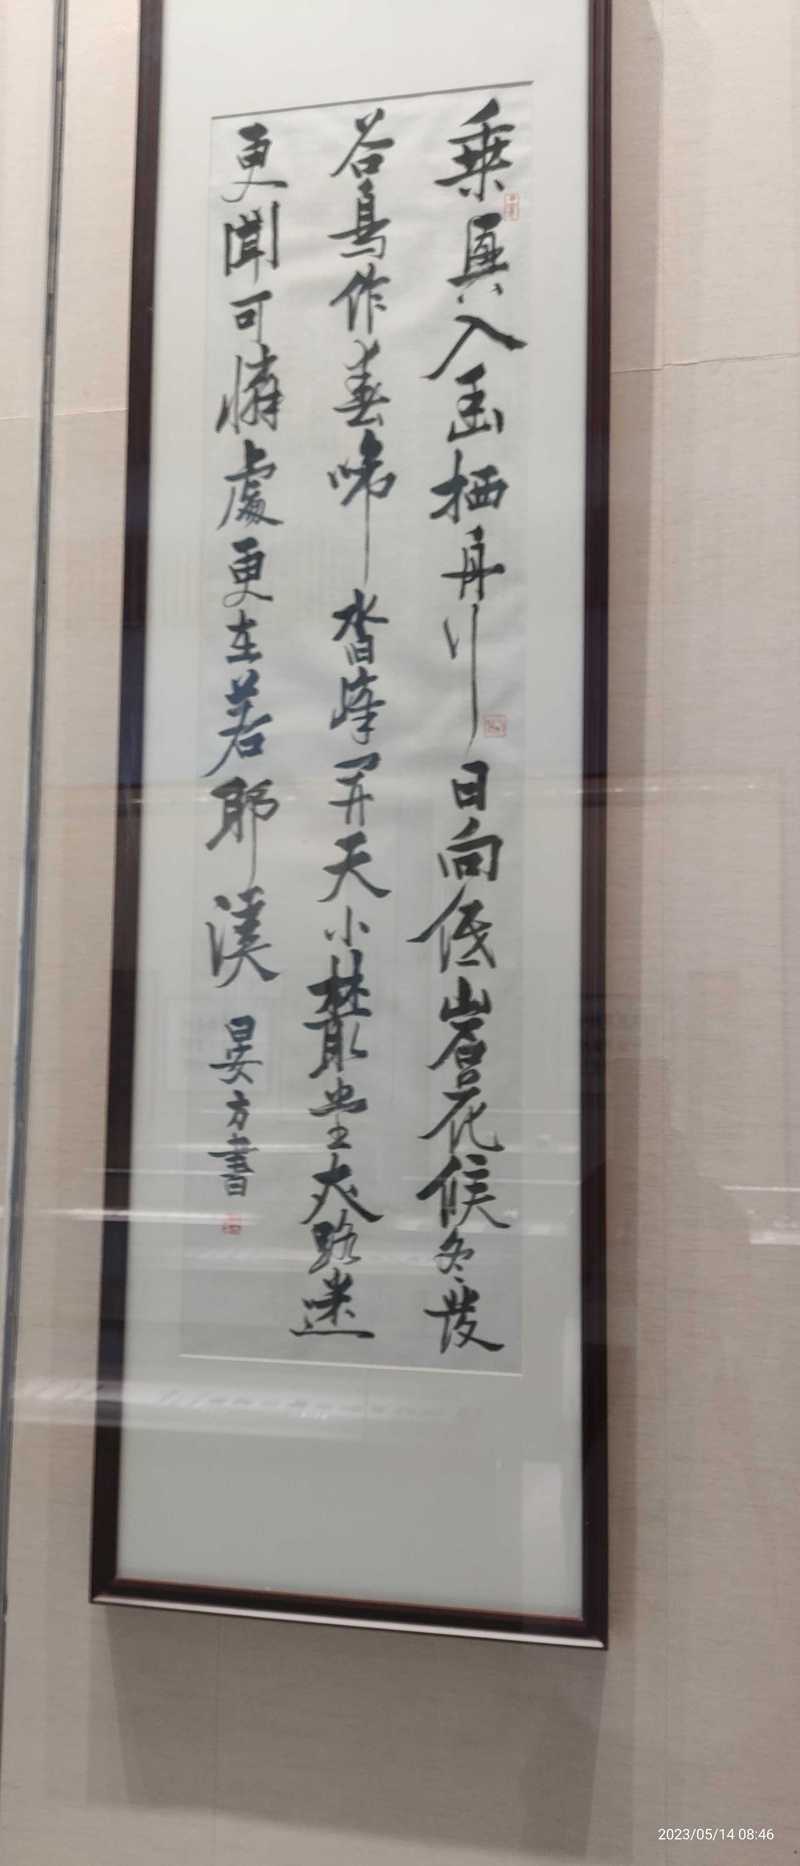 乘興入幽栖舟行日向低岩花候冬發
谷鳥作春啼沓峰開天小叢篁夾路迷
更聞可憐處更在若耶溪 晏方書
2023/05/14 08:46